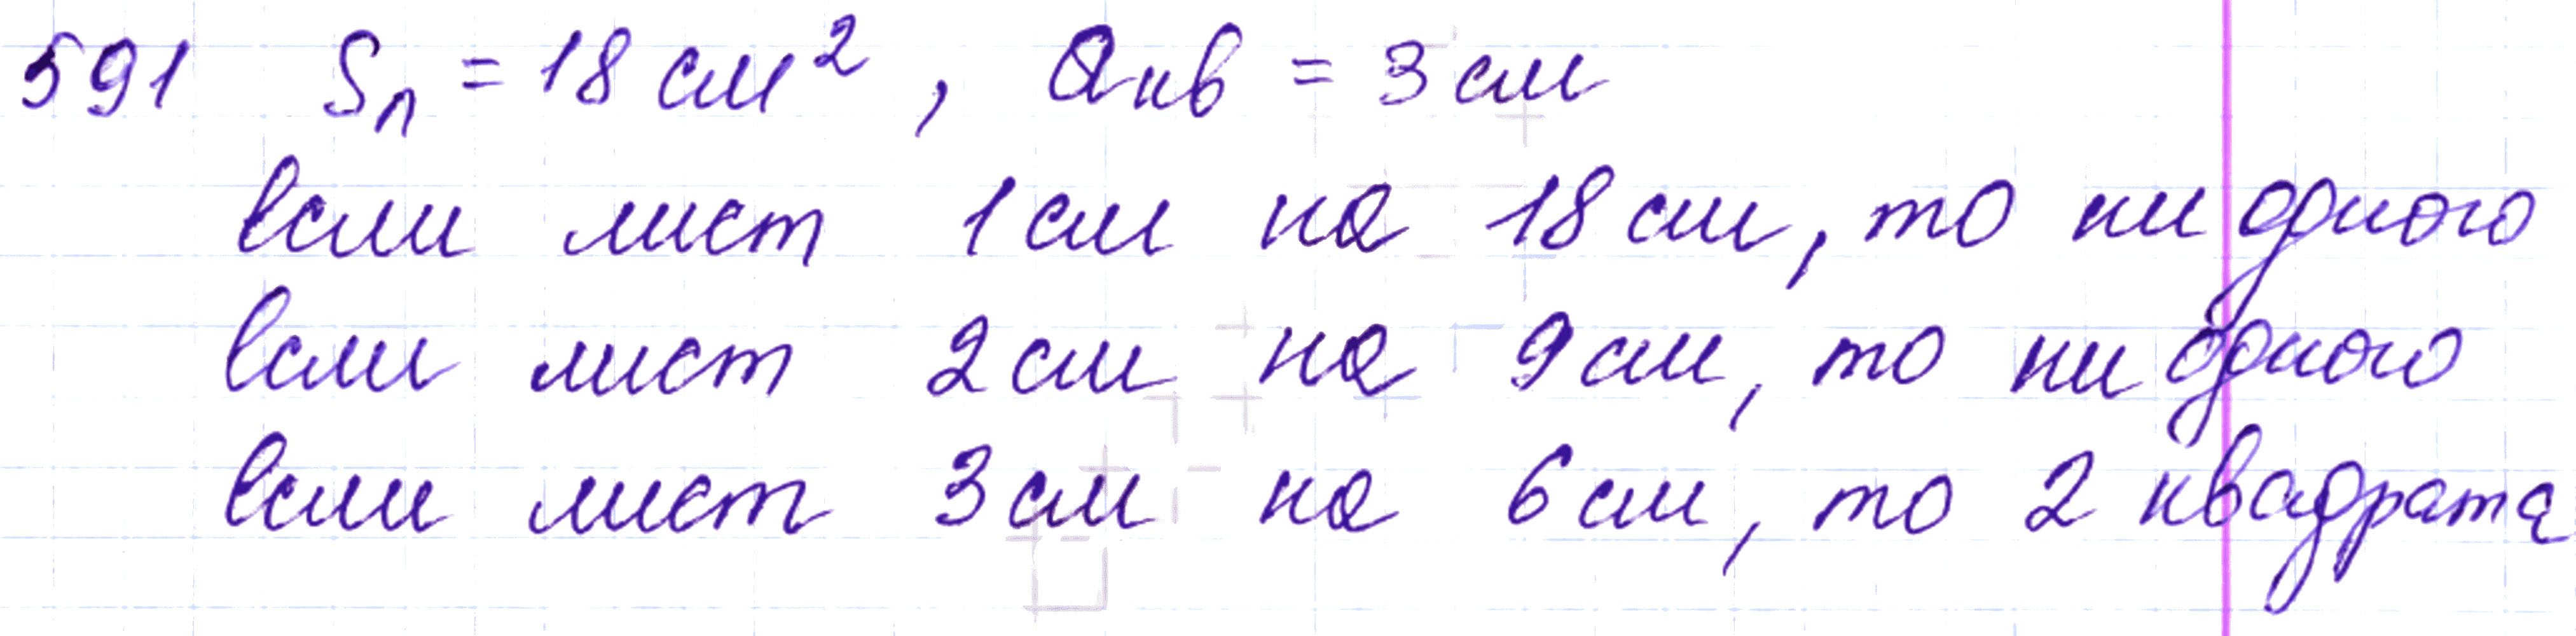 591 Sп = 18 см², aкв = 3 см
если лист 1 см на 18 см, то ни одного
если лист 2 см на 9 см, то ни одного
если лист 3 см на 6 см, то 2 квадрата